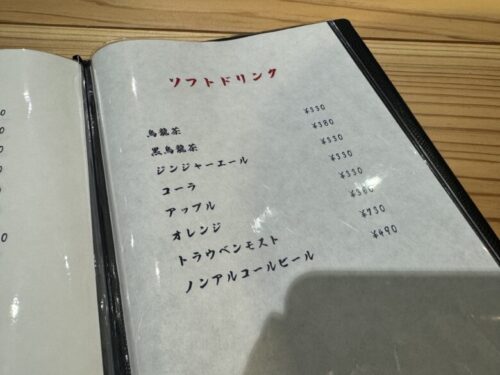 ソフトドリンク
烏龍茶 ¥330
黒烏龍茶 ¥380
ジンジャーエール ¥330
コーラ ¥330
アップル ¥330
オレンジ
トラウベンモスト ¥730
ノンアルコールビール ¥490